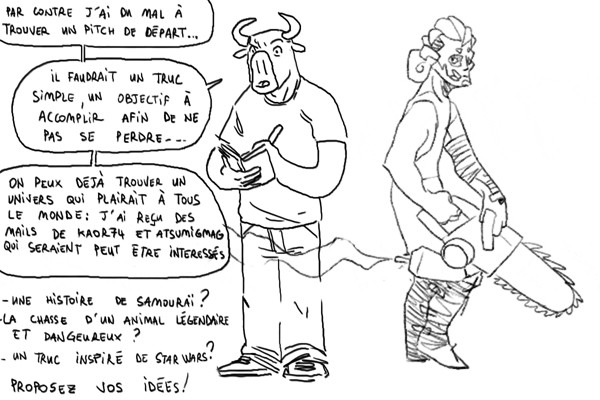 PAR CONTRE J'AI DU MAL À
TROUVER UN PITCH DE DÉPART...
IL FAUDRAIT UN TRUC
SIMPLE, UN OBJECTIF À
ACCOMPLIR AFIN DE NE
PAS SE PERDRE...
ON PEUX DÉJÀ TROUVER UN
UNIVERS QUI PLAIRAIT À TOUS
LE MONDE: J'AI REÇU DES
MAILS DE KAOR74 ET ATSUMIGMAG
QUI SERAIENT PEUT ÊTRE INTERESSÉS
- UNE HISTOIRE DE SAMOURAÏ?
- LA CHASSE D'UN ANIMAL LÉGENDAIRE
ET DANGEUREUX?
- UN TRUC INSPIRÉ DE STAR WARS?
PROPOSEZ VOS IDÉES!